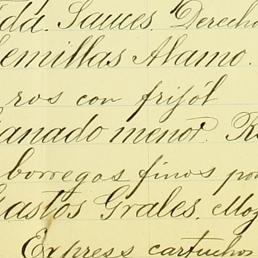 da. Sauces. Derecho
Semillas Alamo.
ros con frijól
Ganado menor. R
borregos finos por
Gastos Grales. Moz
Express cartuchos